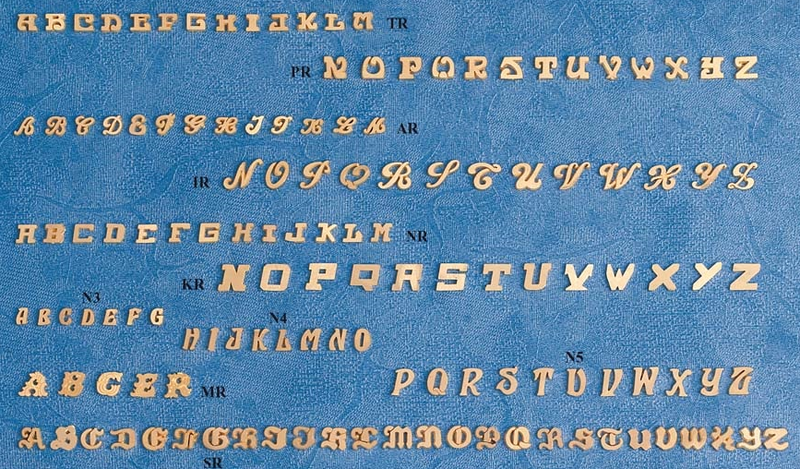 A B C D E F G H I J K L M TR
PR N O P Q R S T U V W X Y Z
A B C D E F G H I J K L M AR
IR N O P Q R S T U V W X Y Z
A B C D E F G H I J K L M NR
KR N O P Q R S T U V W X Y Z
N3
A B C D E F G
N4
H I J K L M N O
N5
P Q R S T U V W X Y Z
A B C E R MR
A B C D E F G H I J K L M N O P Q R S T U V W X Y Z
SR